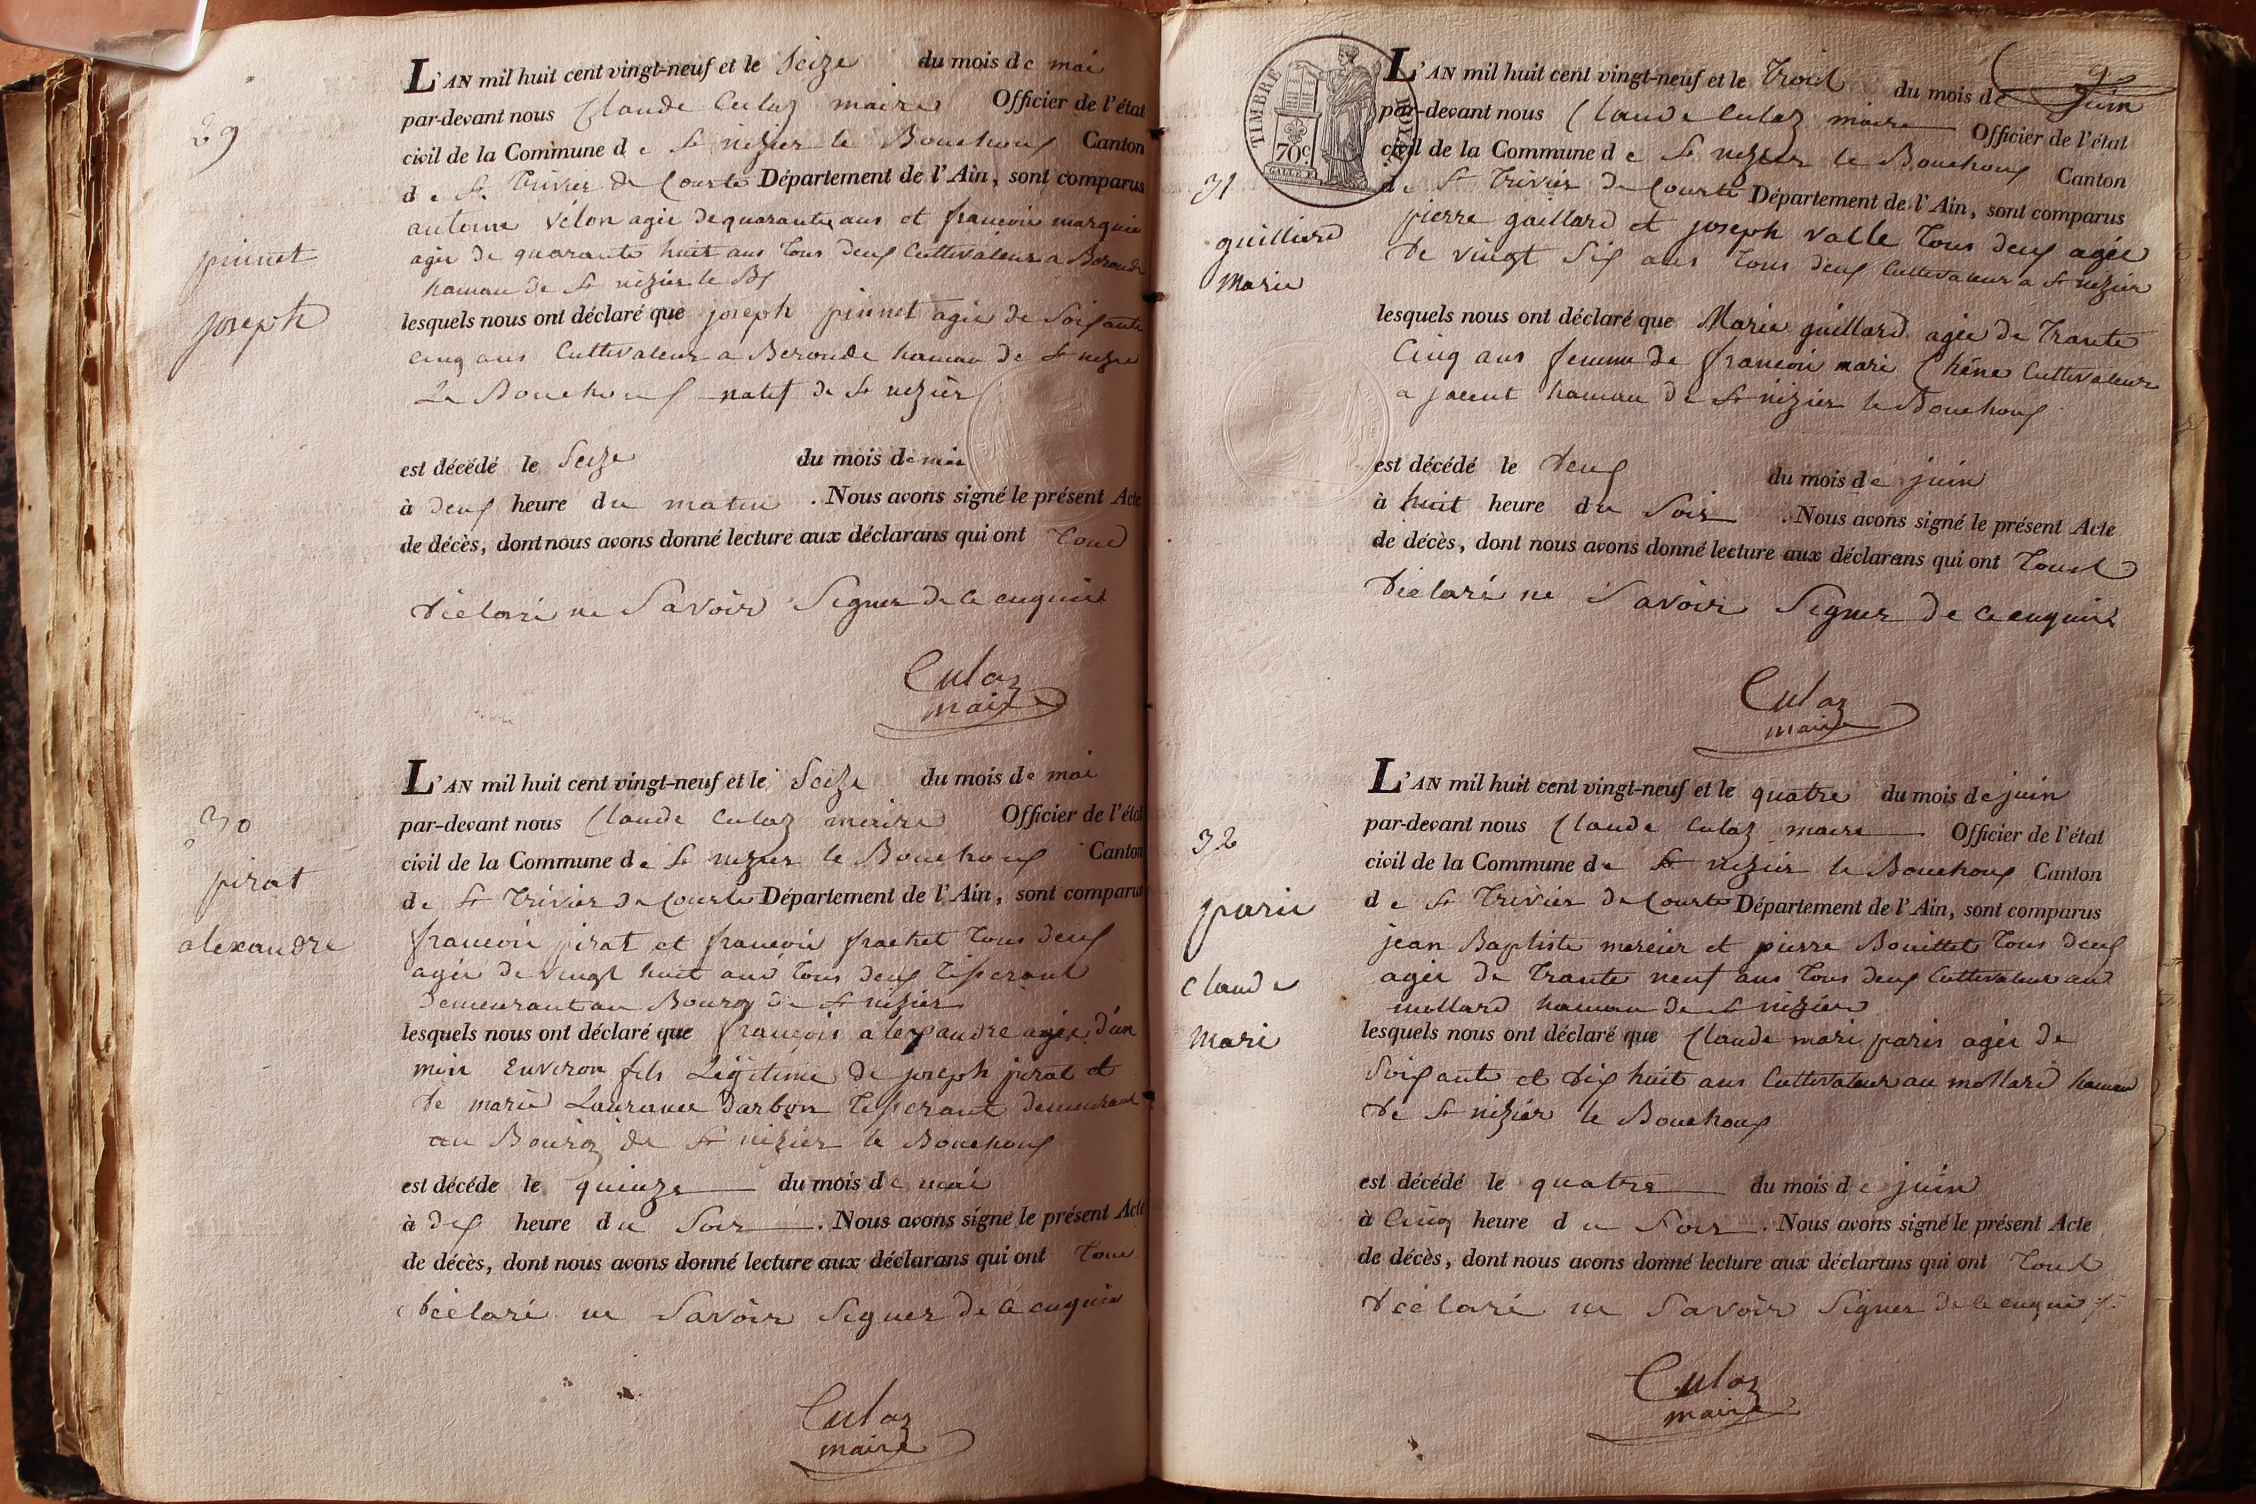 29
pinnet
joseph
L'AN mil huit cent vingt-neuf et le Seize du mois de mai
par-devant nous Claude Culaz maire Officier de l'état
civil de la Commune de St nizier le Bouchoux Canton
de St Trivier de Courte Département de l'Ain, sont comparus
antoine vélon agée de quarante ans et françois marquis
agée de quarante huit ans tous deux Cultivateur a Beroude
hamau de St nizier le Bx
lesquels nous ont déclaré que joseph pinnet agée de Soixante
cinq ans Cultivateur a Beroude hamau de St nizier
Le Bouchoux natif de St nizier
est décédé le Seize du mois de mai
à deux heure du matin . Nous avons signé le présent Acte
de décès, dont nous avons donné lecture aux déclarans qui ont tous
déclaré ne Savoir Signer de ce enquis
Culaz
maire
30
pirat
alexandre
L'AN mil huit cent vingt-neuf et le Seize du mois de mai
par-devant nous Claude Culaz maire Officier de l'état
civil de la Commune de St nizier le Bouchoux Canton
de St Trivier de Courte Département de l'Ain, sont comparus
françois pirat et françois frachet tous deux
agée de vingt huit ans tous deux tisserant
demeurant au Bourg de St nizier
lesquels nous ont déclaré que françois alexandre agée d'un
mois Environ fils Légitime de joseph pirat et
de marie Laurance darbon tisserant demeurant
au Bourg de St nizier le Bouchoux
est décéde le quinze du mois de mai
à dix heure du Soir . Nous avons signé le présent Acte
de décès, dont nous avons donné lecture aux déclarans qui ont tous
déclaré ne Savoir Signer de ce enquis
Culaz
maire
TIMBRE ROYAL
70c
31
guilliard
Marie
L'AN mil huit cent vingt-neuf et le trois du mois de juin
par-devant nous Claude Culaz maire Officier de l'état
civil de la Commune de St nizier le Bouchoux Canton
de St Trivier de Courte Département de l'Ain, sont comparus
pierre gaillard et joseph valle tous deux agée
de vingt Six ans tous deux Cultivateur a St nizier
lesquels nous ont déclaré que Marie guillard agée de trante
Cinq ans femme de françois mari Chêne Cultivateur
a hamau de St nizier le Bouchoux
est décédé le deux du mois de juin
à huit heure du Soir . Nous avons signé le présent Acte
de décès, dont nous avons donné lecture aux déclarans qui ont tous
déclaré ne Savoir Signer de ce enquis
Culaz
maire
32
paris
claude
mari
L'AN mil huit cent vingt-neuf et le quatre du mois de juin
par-devant nous Claude Culaz maire Officier de l'état
civil de la Commune de St nizier le Bouchoux Canton
de St Trivier de Courte Département de l'Ain, sont comparus
jean Baptiste mercier et pierre Bouillet tous deux
agée de trante neuf ans tous deux Cultivateur au
mollard hamau de St nizier
lesquels nous ont déclaré que Claude mari paris agée de
Soixante et dix huit ans Cultivateur au mollard hamau
de St nizier le Bouchoux
est décédé le quatre du mois de juin
à Cinq heure du Soir . Nous avons signé le présent Acte
de décès, dont nous avons donné lecture aux déclarans qui ont tous
déclaré ne Savoir Signer de ce enquis
Culaz
maire